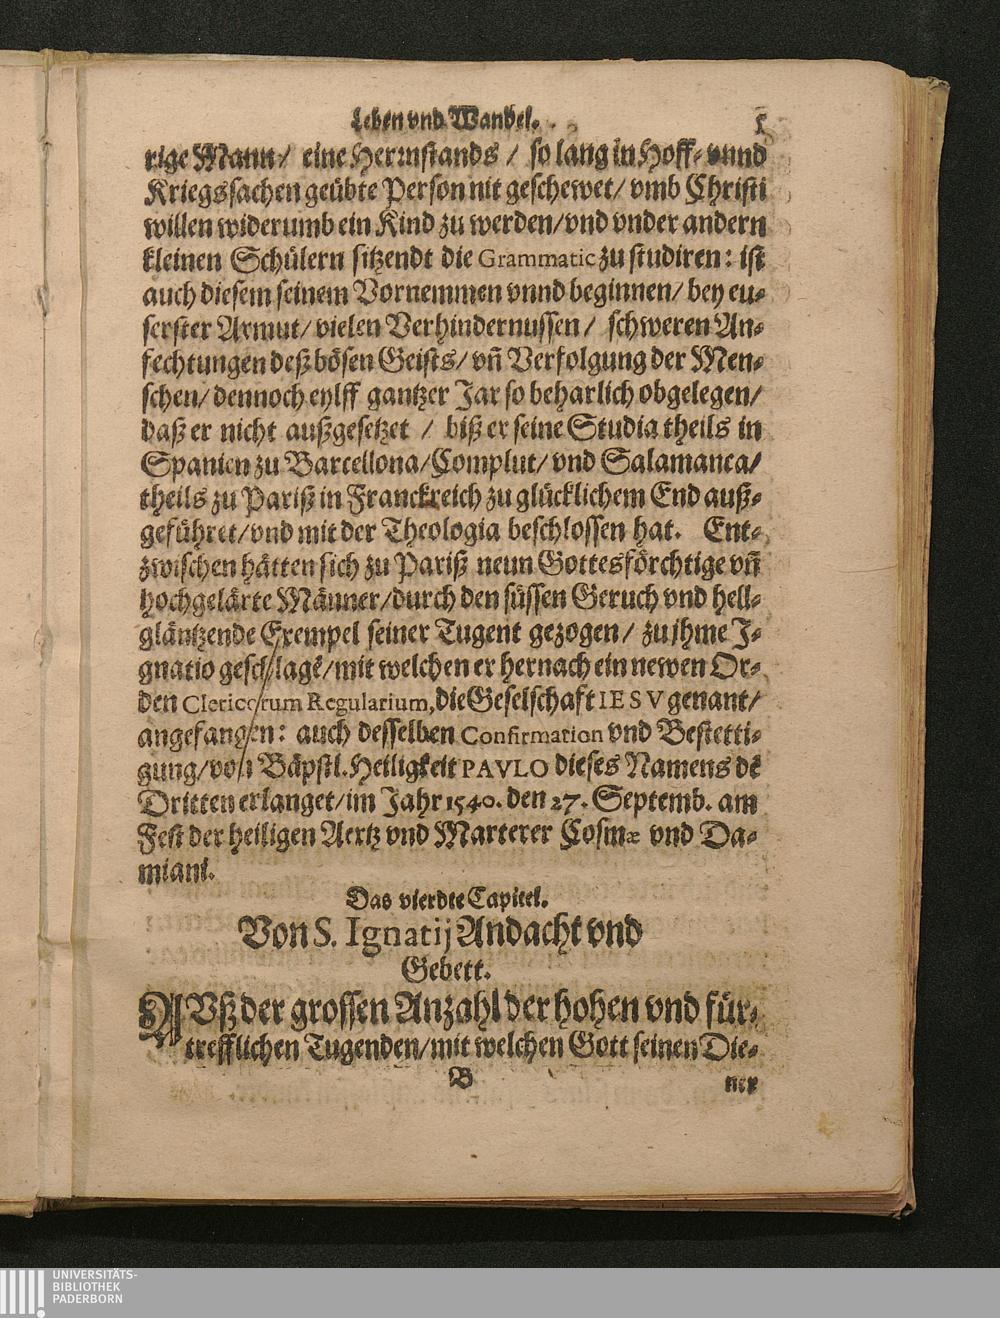 Leben vnd Wandel. 5
rige Mann/ eine Herrnstands / so lang in Hoff⸗ vnnd
Kriegssachen geübte Person nit geschewet/ vmb Christi
willen widerumb ein Kind zu werden/vnd vnder andern
kleinen Schülern sitzendt die Grammatic zu studiren: ist
auch diesem seinem Vornemmen vnnd beginnen/ bey eu⸗
serster Armut/ vielen Verhindernussen / schweren An⸗
fechtungen deß bösen Geists/ vñ Verfolgung der Men⸗
schen/ dennoch eylff gantzer Jar so beharlich obgelegen/
daß er nicht außgesetzet / biß er seine Studia theils in
Spanien zu Barcellona/Complut/ vnd Salamanca/
theils zu Pariß in Franckreich zu glücklichem End auß⸗
geführet/vnd mit der Theologia beschlossen hat. Ent⸗
zwischen hätten sich zu Pariß neun Gottesförchtige vñ
hochgelärte Männer/durch den süssen Geruch vnd hell⸗
gläntzende Exempel seiner Tugent gezogen/ zu jhme J⸗
gnatio geschlagẽ/mit welchen er hernach ein newen Or⸗
den Clericorum Regularium, die Geselschaft IESV genant/
angefangen: auch desselben Confirmation vnd Bestetti⸗
gung/von Bäpstl. Heiligkeit PAVLO dieses Namens dẽ
Dritten erlanget/im Jahr 1540. den 27. Septemb. am
Fest der heiligen Aertz vnd Marterer Cosmæ vnd Da⸗
miani.
Das vierdte Capitel.
Von S. Ignatij Andacht vnd
Gebett.
AVß der grossen Anzahl der hohen vnd für⸗
trefflichen Tugenden/mit welchen Gott seinen Die⸗
B ner
UNIVERSITÄTS-
BIBLIOTHEK
PADERBORN